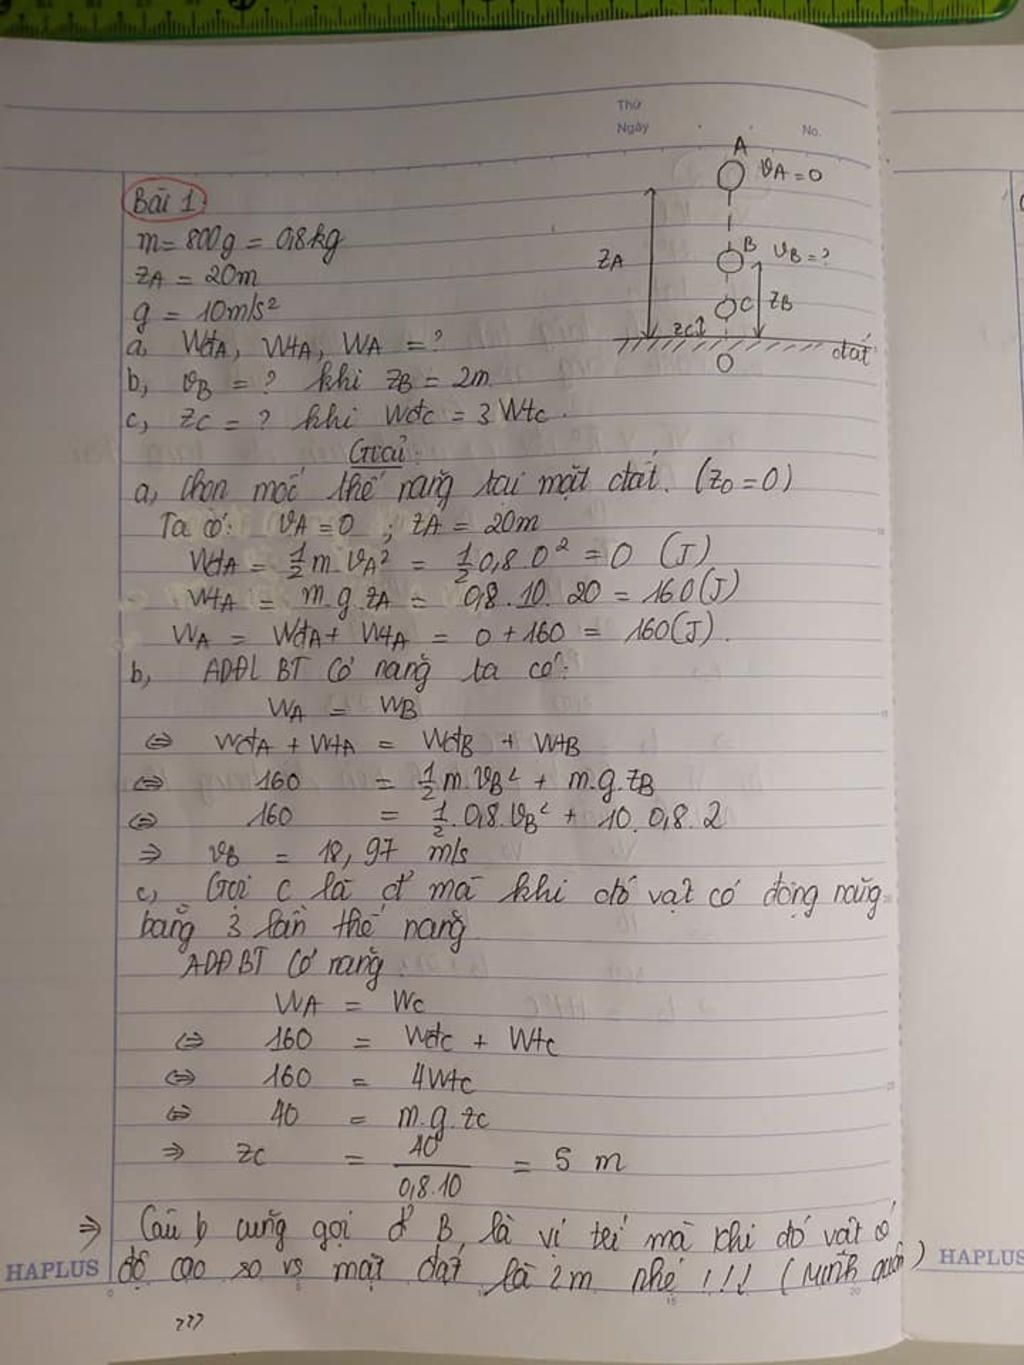 Thứ
Ngày
No.
A
vA = 0
Bài 1
m = 800g = 0,8kg
zA
B
vB = ?
zA = 20m
C
zB
g = 10m/s²
zC
đất
O
a, WđA, WtA, WA = ?
b, vB = ? khi zB = 2m
c, zC = ? khi WđC = 3 WtC.
Giải:
a, Chọn mốc thế năng tại mặt đất. (zO = 0)
Ta có: vA = 0 ; zA = 20m
WđA = 1/2 m. vA² = 1/2 0,8 . 0² = 0 (J)
WtA = m. g. zA = 0,8 . 10. 20 = 160(J)
WA = WđA + WtA = 0 + 160 = 160(J).
b, ADĐL BT Cơ năng ta có:
WA = WB
⇔ WđA + WtA = WđB + WtB
⇔ 160 = 1/2 m. vB² + m.g.zB
⇔ 160 = 1/2 . 0,8. vB² + 10. 0,8. 2
⇒ vB = 18,97 m/s
c, Gọi C là đ' mà khi đó vật có động năng
bằng 3 lần thế năng
ADĐBT Cơ năng:
WA = WC
⇔ 160 = WđC + WtC
⇔ 160 = 4WtC
⇔ 40 = m.g.zC
⇒ zC = 40/0,8.10 = 5 m
⇒ Câu b cũng gọi đ' B là vị trí mà khi đó vật có
độ cao so vs mặt đất là 2m nhé !!! (Mình quên)
HAPLUS
HAPLUS
???